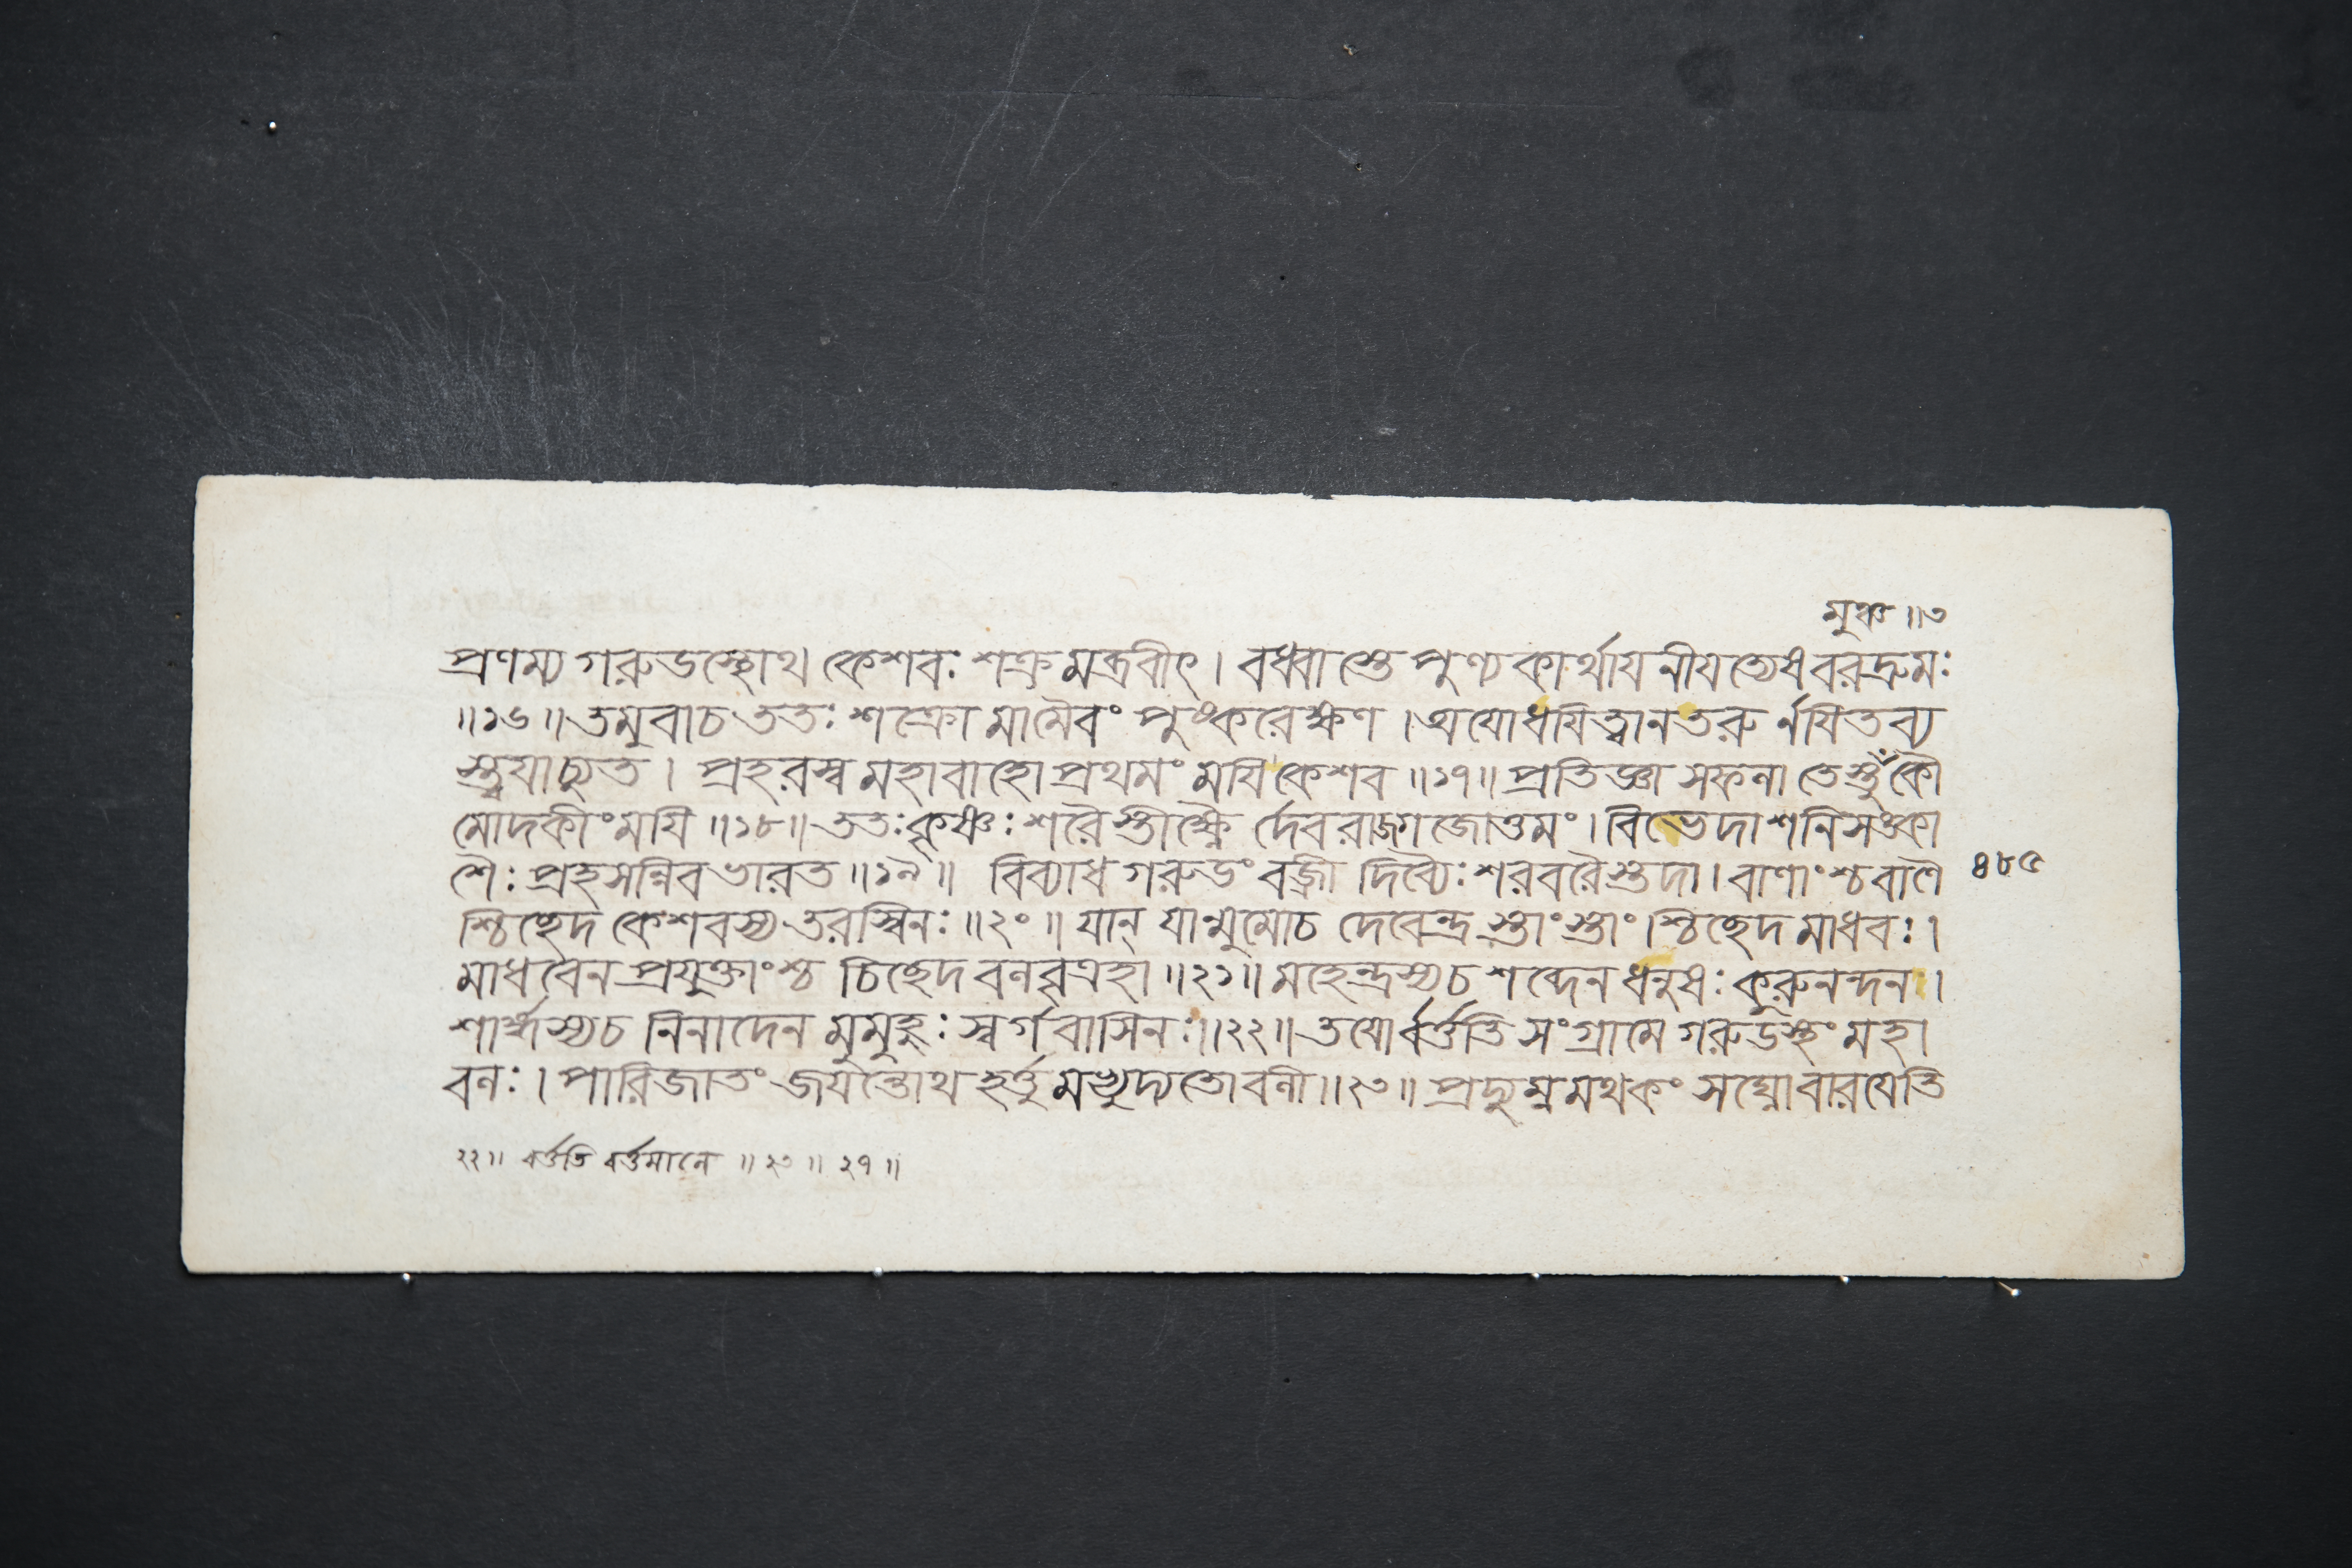 মুঞ্চ ॥৩
প্রণম্য গরুডস্থোথ কেশবঃ শক্রমব্রবীৎ। বধ্বাস্তে পুণ্যকার্থায নীযত্যেষ বরদ্রুমঃ
॥১৬॥ তমুবাচ ততঃ শক্রো মামৈবং পুষ্করেক্ষণ। অযোধযিত্বা ন তরু র্নযিতব্য
স্ত্বযাচ্যুত। প্রহরস্ব মহাবাহো প্রথমং মযি কেশব ॥১৭॥ প্রতিজ্ঞা সফলা তেস্তু মুঁ কৌ
মোদকীং মযি ॥১৮॥ ততঃ কৃষ্ণঃ শরৈস্তীক্ষ্ণৈ র্দেবরাজগজোত্তমং। বিভেদাশনিসঙ্কা
শৈঃ প্রহসন্নিব ভারত ॥১৯॥ বিব্যাধ গরুডং বজ্রী দিব্যৈঃ শরবরৈস্তদা। বাণাংশ্চ বাণৈ
শ্চিচ্ছেদ কেশবস্য তরস্বিনঃ ॥২০॥ যান্ যান্মুমোচ দেবেন্দ্র স্তাংস্তাং। শ্চিচ্ছেদ মাধবঃ।
মাধবেন প্রযুক্তাংশ্চ চিচ্ছেদ বলবৃত্রহা ॥২১॥ মহেন্দ্রস্য চ শব্দেন ধনুষঃ কুরুনন্দন।
শার্ঙ্গস্য চ নিনাদেন মুমুহুঃ স্বর্গবাসিনঃ ॥২২॥ তযোর্বর্ত্ততি সংগ্রামে গরুডস্থং মহা
বলঃ। পারিজাতং জযন্তোথ হর্ত্তুমভ্যুদ্যতো বলী ॥২৩॥ প্রদ্যুম্নমথ কং সঘ্নো বারযেতি
৪৮৫
২২॥ বর্ত্ততি বর্ত্তমানে ॥ ২৩ ॥ ২৭ ॥